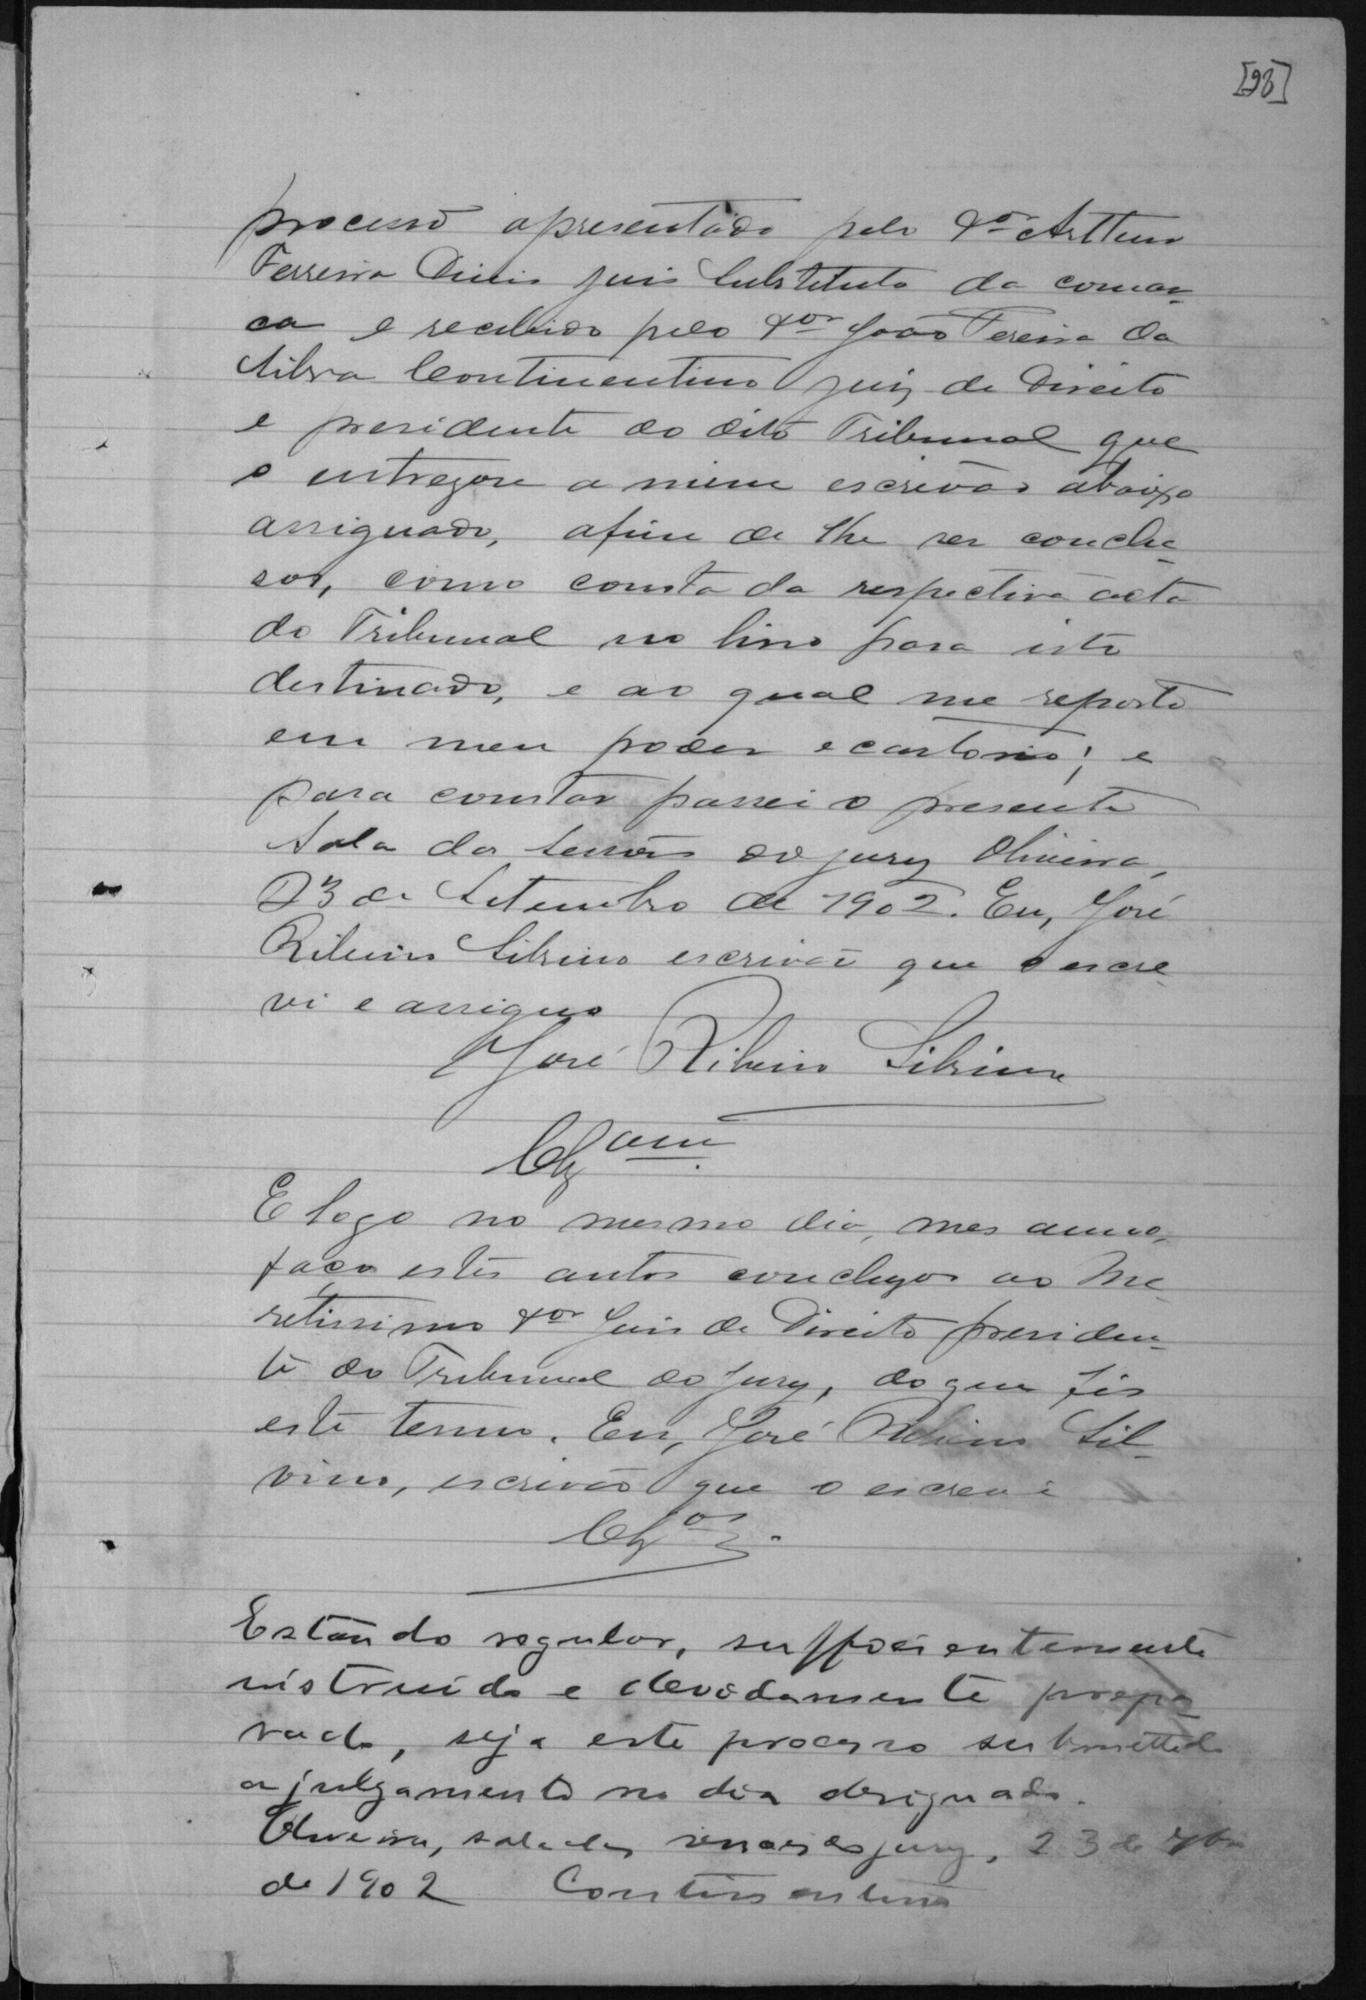 [28]
processo apresentado pelo Dor Arthur
Ferreira Dinis juis Substituto da comar-
ca e recebido pelo Dor João Pereira da
Silva Continentino juiz de Direito
e presidente do dito Tribunal que
o entregou a mim escrivão abaixo
assignado, afim de lhe ser conclu-
sos, como consta da respectiva acta
do Tribunal no livro para isto
destinado, e ao qual me reporto
em meu poder e cartorio; e
para constar passei o presente
Sala das sessões do jury Oliveira,
23 de Setembro de 1902. Eu, José
Ribeiro Silvino escrivão que o escre-
vi e assigno
José Ribeiro Silvino
Clzam
E logo no mesmo dia, mes anno,
faço estes autos concluzos ao Me-
retissimo Dor Juis de Direito presiden-
te do Tribunal do jury, do que fis
este termo. Eu, José Ribeiro Sil-
vino, escrivão que o escrevi
Clzos
Estando regular, sufficientemente
instruido e devidamente prepa-
rado, seja este processo submettido
a julgamento no dia designado.
Oliveira, sala das sessões do jury, 23 de 7bro
de 1902 Continentino